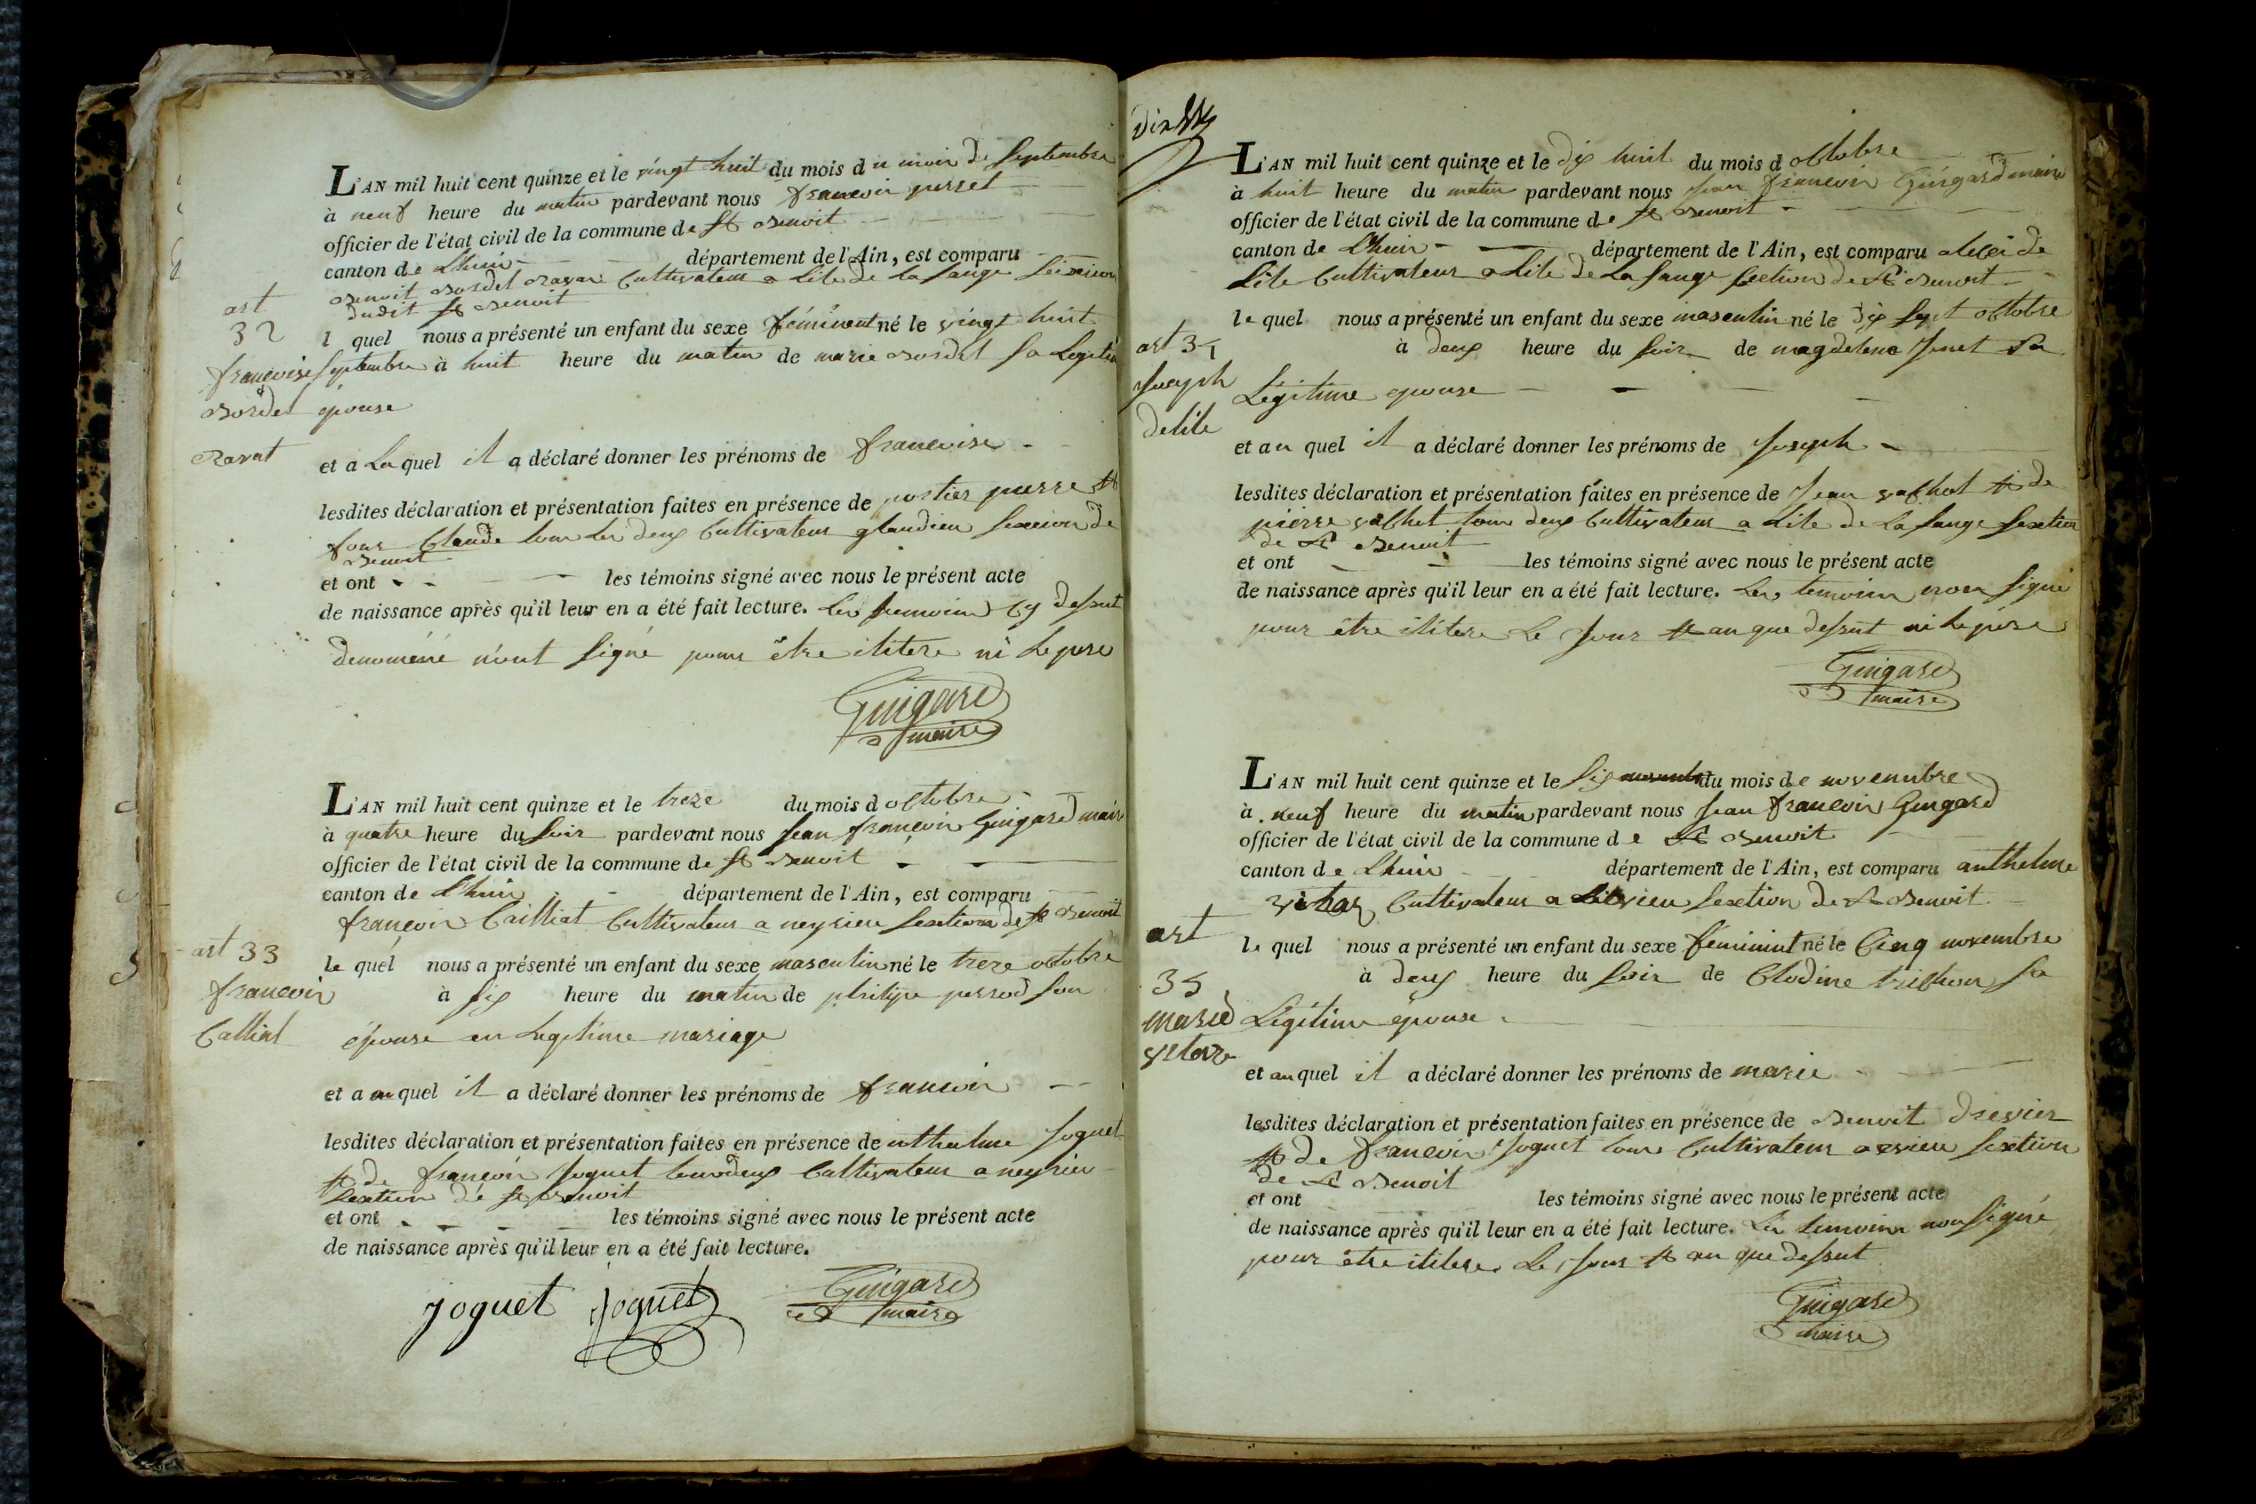 art
32
françoise
Bordel
Ravat
L'AN mil huit cent quinze et le vingt huit du mois d u mois de septembre
à neuf heure du matin pardevant nous françois perret
officier de l'état civil de la commune de st Benoit
canton de Lhuis département de l'Ain, est comparu
Benoit Bordel Cultivateur a Lile de la Sauge
dudit st Benoit
l quel nous a présenté un enfant du sexe féminent né le vingt huit
septembre à huit heure du matin de marie Bordel sa Legitim
épouse
et a La quel il a déclaré donner les prénoms de françoise
lesdites déclaration et présentation faites en présence de postier pierre et
Claude tour les deux Cultivateur glandieu section de
Benoit
et ont les témoins signé avec nous le présent acte
de naissance après qu'il leur en a été fait lecture. Les temoins cy dessut
denoméné n'ont signé pour être ilitere ni le pere
Guigard
maire
art 33
françois
Callial
L'AN mil huit cent quinze et le treze du mois d octobre
à quatre heure du soir pardevant nous jean françois Guigard maire
officier de l'état civil de la commune de st Benoit
canton de Lhuis département de l'Ain, est comparu
françois Cailliat Cultivateur a neyrieu section de st Benoit
le quel nous a présenté un enfant du sexe masculin né le treze octobre
à six heure du matin de philipe perrod son
épouse en Legitime mariage
et a au quel il a déclaré donner les prénoms de françois
lesdites déclaration et présentation faites en présence de antheleme Joguet
et de françois Joguet tour deux Cultivateur a neyrieu
section de st Benoit
et ont les témoins signé avec nous le présent acte
de naissance après qu'il leur en a été fait lecture.
joguet joguet Guigard
maire
art 34
joseph
delile
L'AN mil huit cent quinze et le dix huit du mois d octobre
à huit heure du matin pardevant nous jean françois Guigard maire
officier de l'état civil de la commune de st Benoit
canton de Lhuis département de l'Ain, est comparu de
Lile Cultivateur a Lile de La Sauge section de st Benoit
le quel nous a présenté un enfant du sexe masculin né le dix sept octobre
à deux heure du soir de magdelene Jenet sa
Légitime epouse
et au quel il a déclaré donner les prénoms de Joseph
lesdites déclaration et présentation faites en présence de Jean vachot et de
pierre vachot tour deux Cultivateur a Lile de La Sauge section
de st Benoit
et ont les témoins signé avec nous le présent acte
de naissance après qu'il leur en a été fait lecture. Les temoins non signé
pour être ilitere Le jour et an que dessut ni le pere
Guigard
maire
art
35
marie
vetaz
L'AN mil huit cent quinze et le six du mois de novembre
à neuf heure du matin pardevant nous jean françois Guigard
officier de l'état civil de la commune d e st Benoit
canton de Lhuis département de l'Ain, est comparu anthelme
Cultivateur a section de st Benoit
le quel nous a présenté un enfant du sexe féminint né le Cinq novembre
à deux heure du soir de Clodine trichon sa
Légitime épouse
et au quel il a déclaré donner les prénoms de marie
lesdites déclaration et présentation faites en présence de Benoit drevier
et de françois Joguet tour Cultivateur a evieu section
de st Benoit
et ont les témoins signé avec nous le présent acte
de naissance après qu'il leur en a été fait lecture. Les temoins non signé
pour être ilitere. Le jour et an que dessut
Guigard
maire